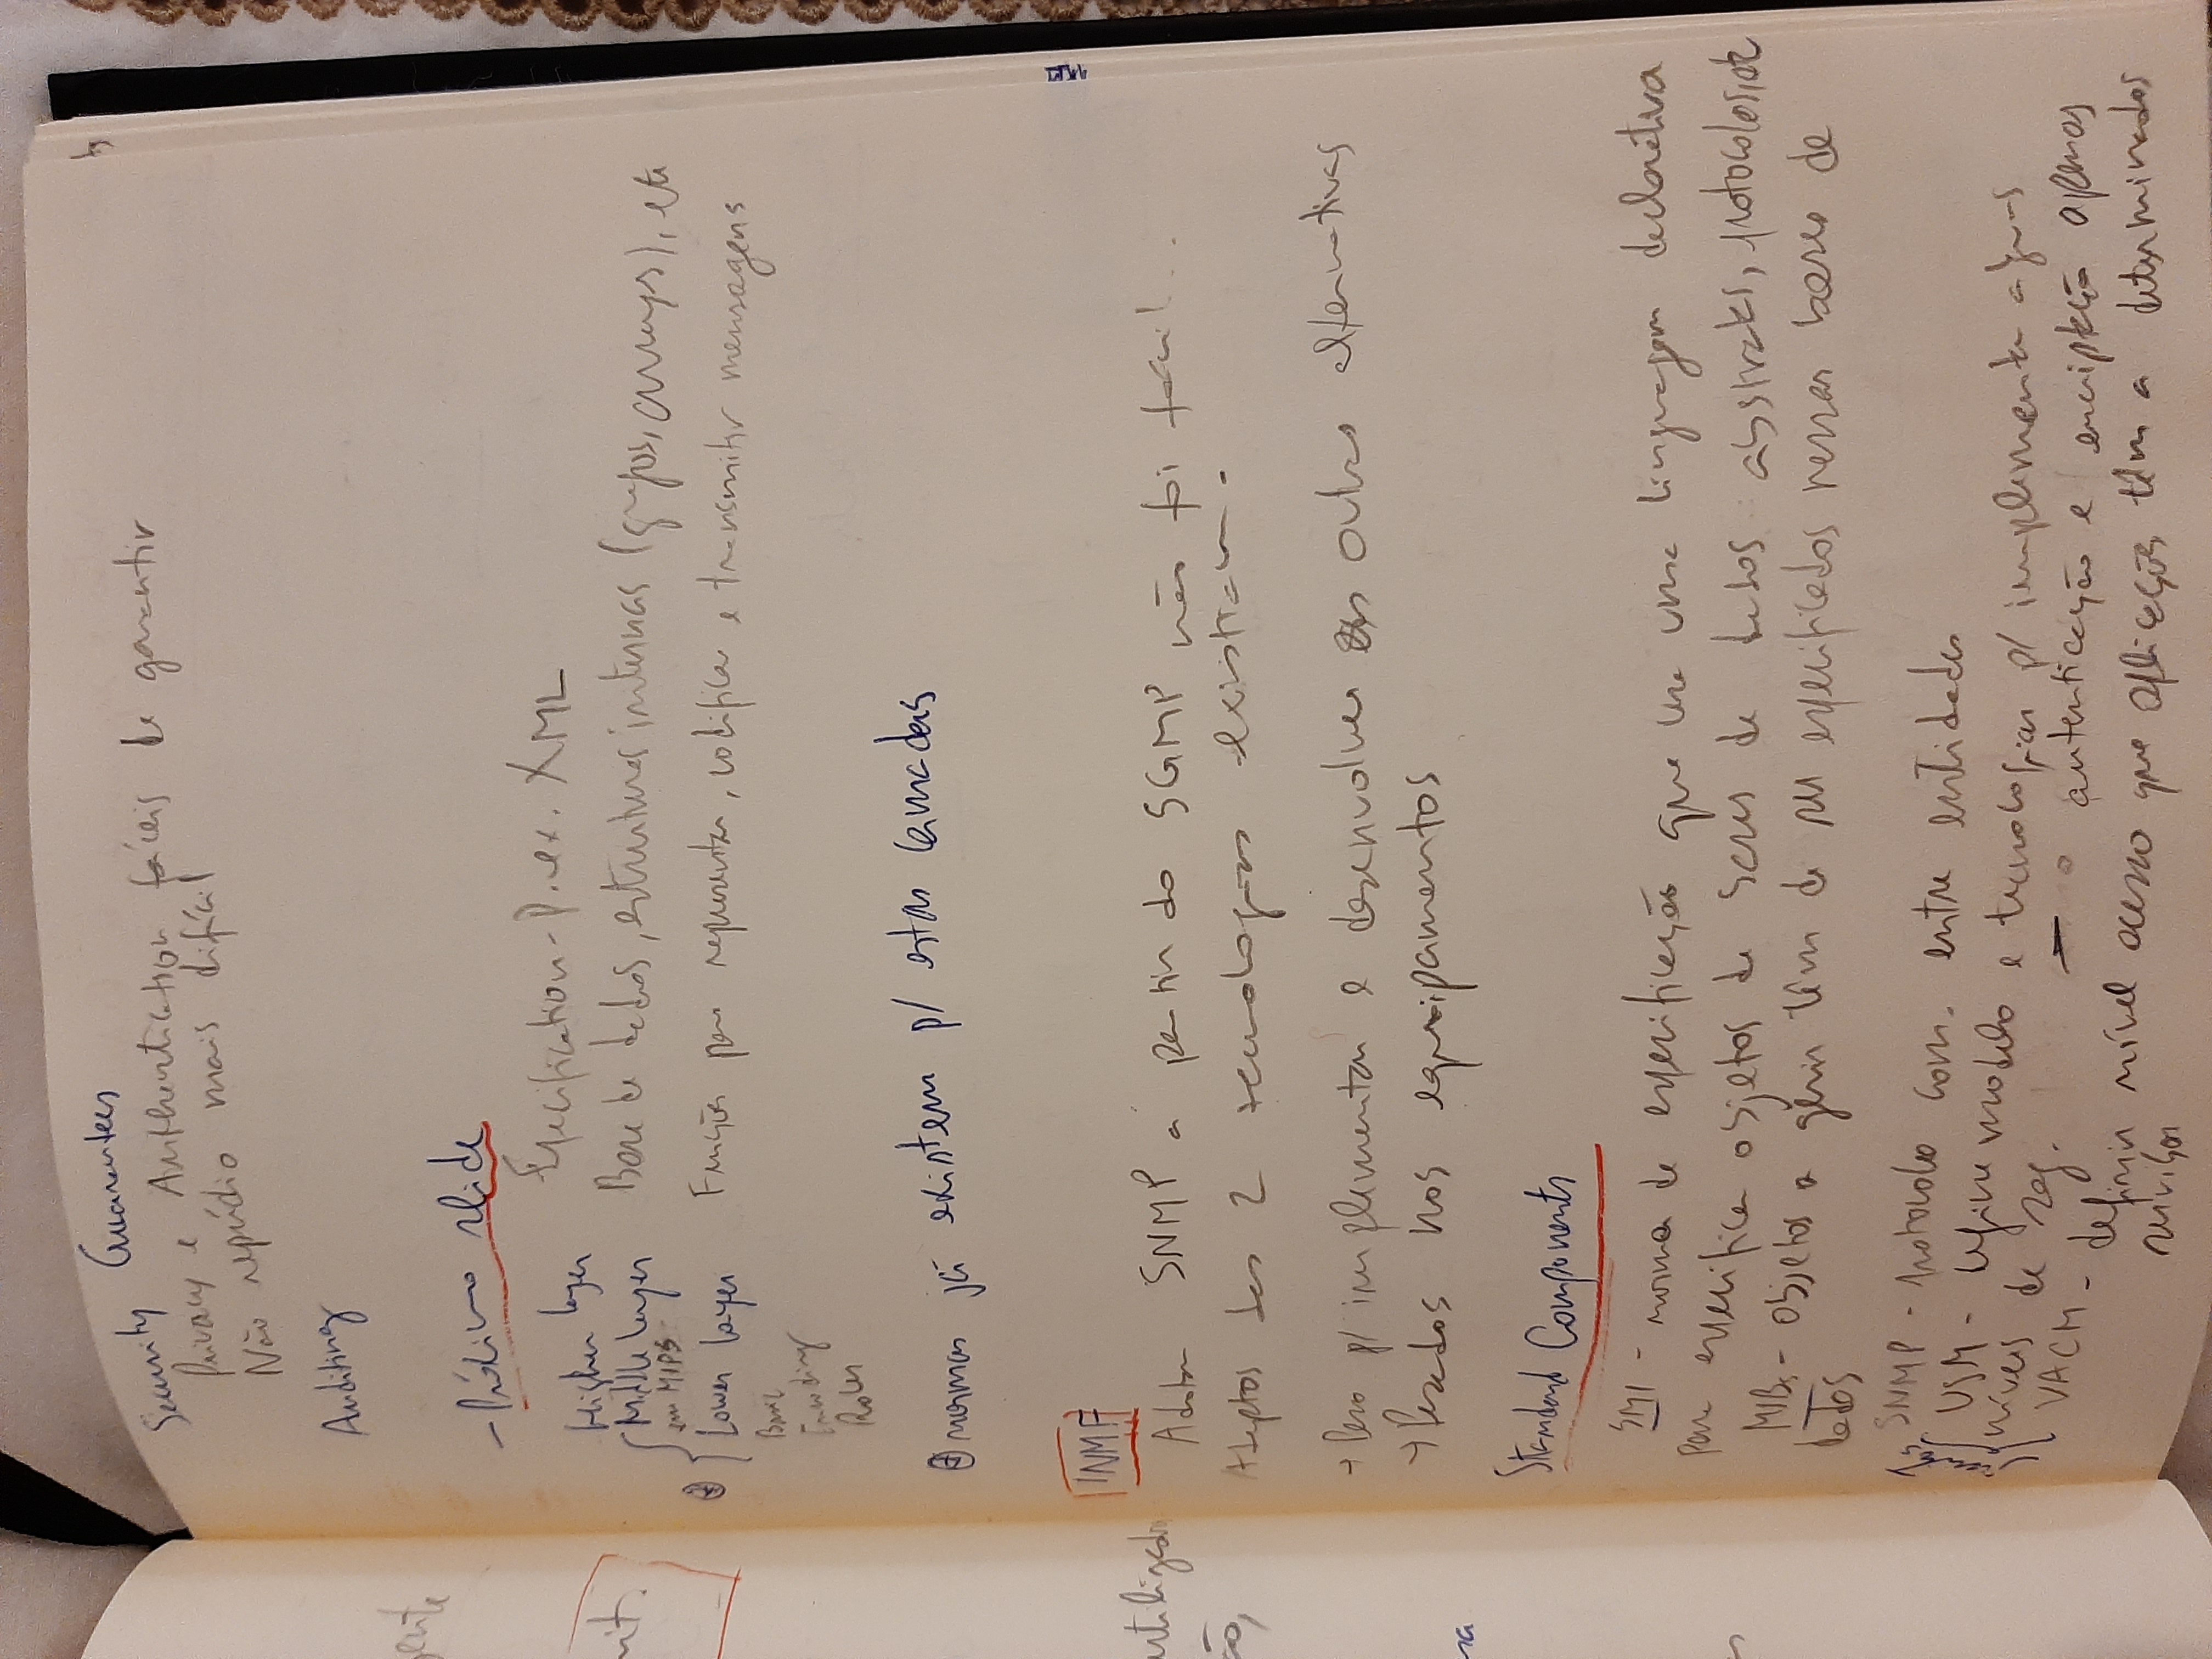 Security Guarantees
Privacy e Authentication fáceis de garantir
Não repúdio mais difícil
Auditing
- Próximo slide
Higher layer Especification - P. ex. XML
Middle layer Base de dados, estruturas internas (grafos, arrays), etc
em MIPS
Lower layer Funções para representar, codificar e transmitir mensagens
Basic
Encoding
Roles
normas já existem p/ estas camadas
INMF
Adotar SNMP a partir do SGMP não foi fácil...
Adeptos das 2 tecnologias existiam.
→ p/ implementar e desenvolver as outras alternativas
→ Pesados nos equipamentos
Standard Components
SMI - norma de especificação que usa uma linguagem declarativa
para especificar objetos de bases de dados abstratas, protocolos, etc
MIBs - objetos a gerir têm de ser especificados nessas bases de
dados
SNMP - protocolo com. entre entidades
USM - define modelo e tecnologias p/ implementar alguns
níveis de seg. → autenticação e encriptação apenas
VACM - definir nível acesso que aplicações têm a determinados
serviços
ente
nit.
utilizador
ão,